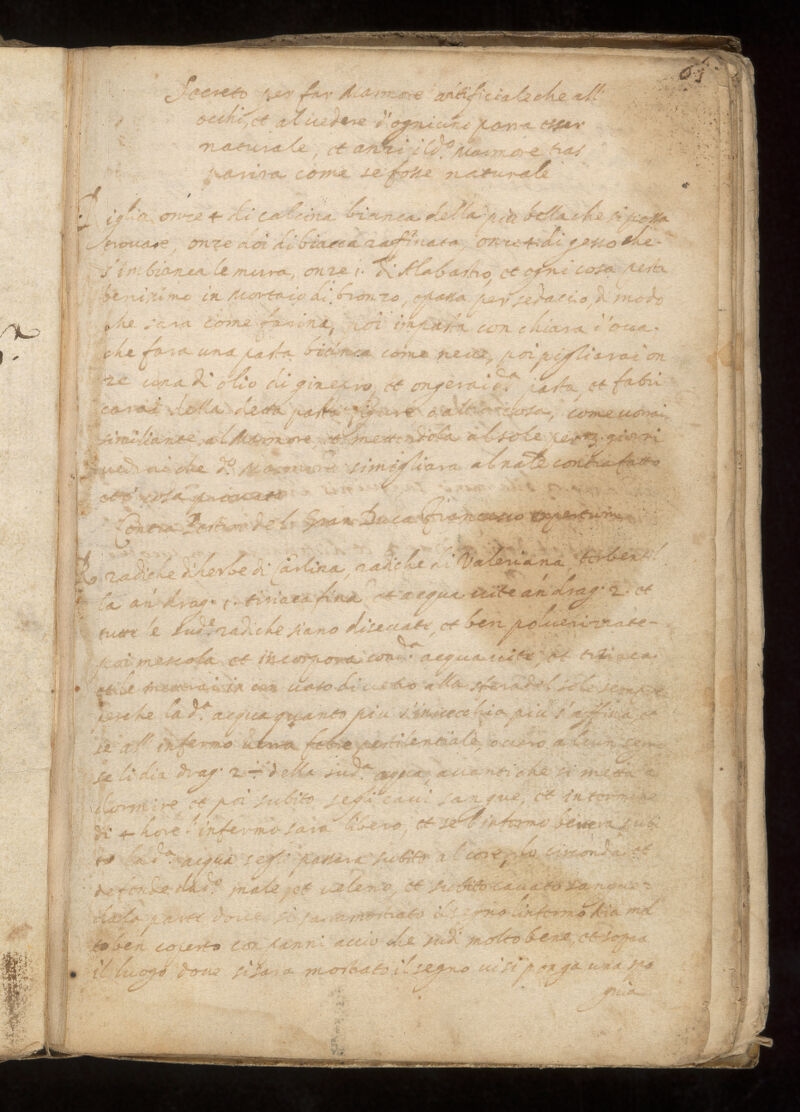 61
Secreto per far Marmore artificiale che all'
occhi, et al vedere d'ogniuni parra esser
naturale, et anzi il d.º Marmore tras
parira come se fosse naturale
Piglia onze 4 di calcina bianca della piu bella che si possa
trovare, onze doi di biacca raffinata, onze 4 di gesso che
s'imbianca le mura, onze 1. di Alabastro, et ogni cosa pesta
benissimo in Mortaio di bronzo, e passa per sedaccio, di modo
che sara come farina, poi impasta con chiara d'oua
che fara una pasta bianca come neue, poi pigliarai on
ze una di olio di ginepro, et ongerai d.ª pasta, et fabri
carai della detta pasta figure o altra cosa, come vorai
similiante al Marmore, et mettendola al sole per giorni
vedrai che d.º Marmore simigliara al nat.le contrafatto
et è cosa provata
Contra Pestem del Gran Duca Francesco expertum
R radiche d'herbe di Carlina, radiche di Valeriana,
la an drag. 1. tiriaca fina et acqua vite an drag. 2. et
tutte le sud.e radiche siano disecate, et ben polverizzate
poi mescola et incorpora con d.ª acqua vite, et tiriaca
et le metterai in un vaso di vetro alla spera del sole sempre
perche la d.ª acqua quanto piu s'invecchia piu s'affina,
se all'infermo verra febre pestilentiale, overo alcun segno
se li dia drag. 2 della sud.ª acqua avanti che si metta a
dormire et poi subito se gli cavi sangue, et in termine
di 4 hore l'infermo sara libero, et se l'infermo bevera subi
to la d.ª acqua se gli passera subito al core, lo circonda et
defende dal d.º male, et veleno, et subito cavato sangue
dala parte dove si sara mostrato il segno l'infermo stia mol
to ben coperto con panni accio che sudi molto bene, et sopra
il luogo dove si sara mostrato il segno vi si ponga una spo
gnia